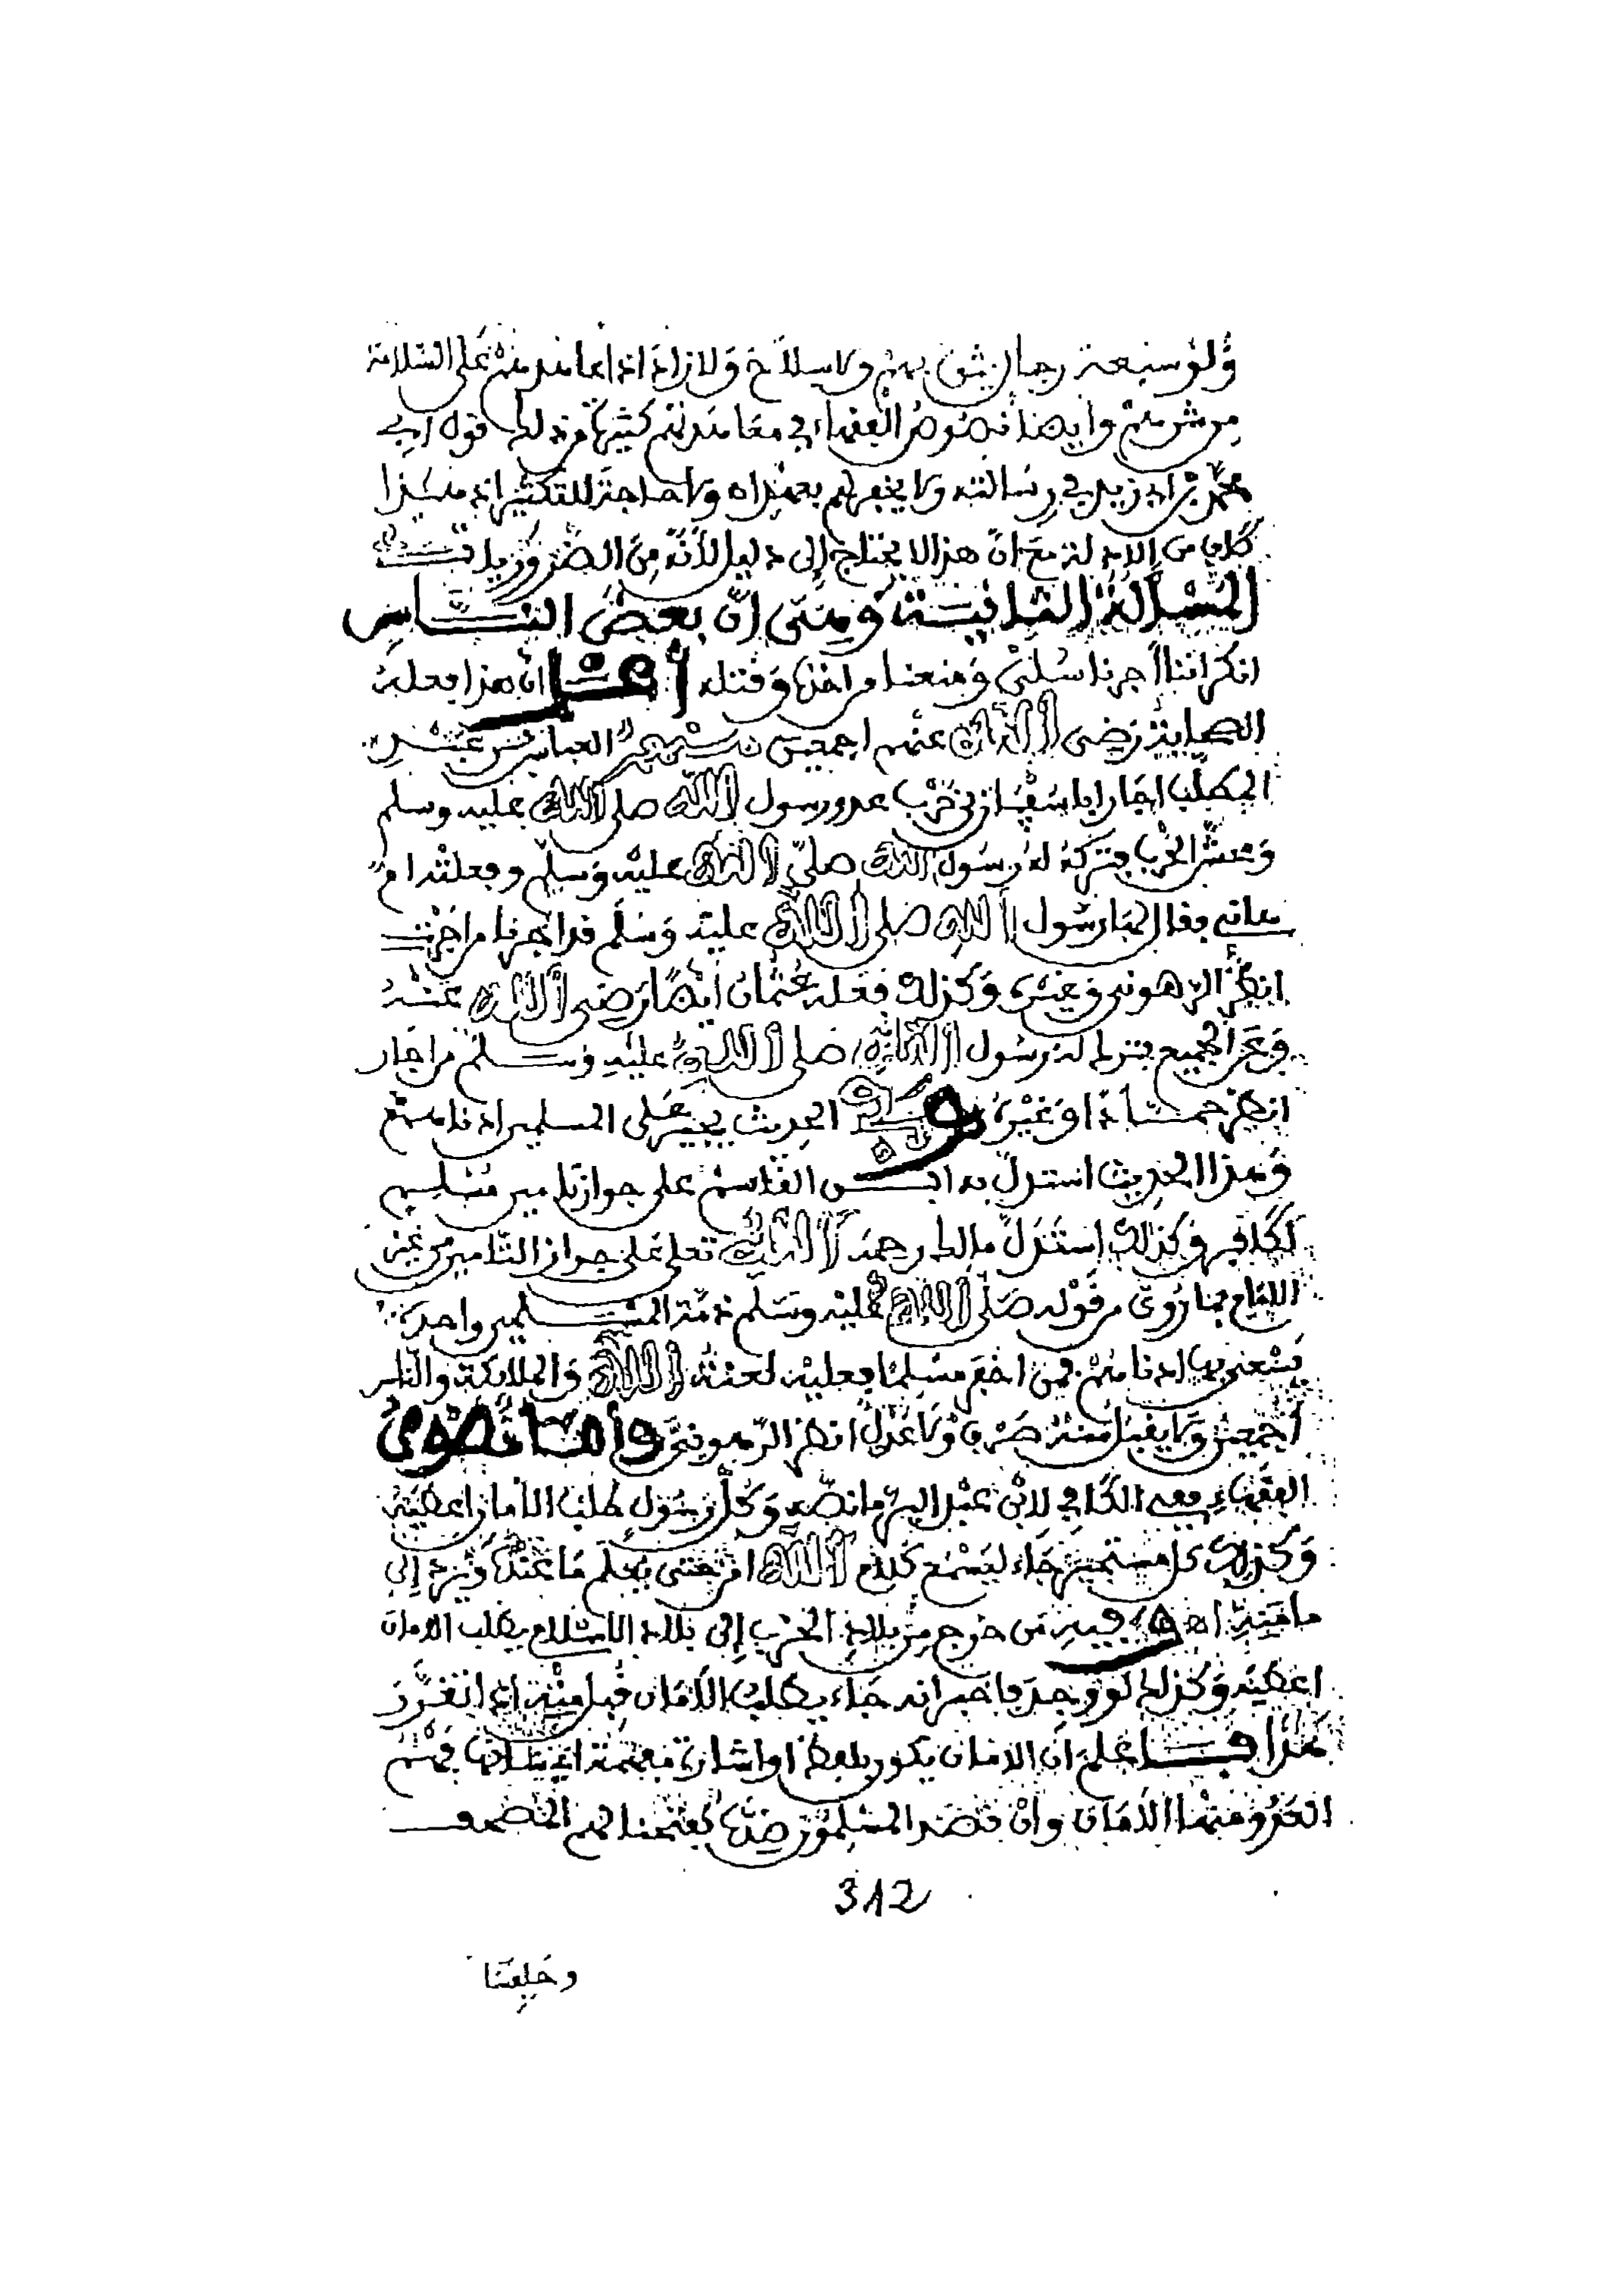 ولو سبعة رجال يثق بهم ولا سلاح ولا زاد اذا عاهدهم على السلامة
من شرهم وايضا نصوص الفقهاء في معاهدتهم كثيرة من ذلك قول ابي
محمد بن ابي زيد في رسالته ولا يخفر لهم بعهد اه ولا حاجة للتكثير اذ هذا
كاف من الادلة مع ان هذا لا يحتاج إلى دليل لأنه من الضروريات
المسألة الثانية وهي ان بعض الناس
انكر اننا أجرنا ومنعنا من اخذها وقتله أما ان هذا فعله
الصحابة رضي الله عنهم اجمعين العباس بن عبد
المطلب اجار ابا سفيان بن حرب عدو رسول الله صلى الله عليه وسلم
الحرب فتركه له رسول الله صلى الله عليه وسلم وفعلته ام
هانى فقال لها رسول الله صلى الله عليه وسلم قد اجرنا من اجرت
انظر الرهونى وغيره وكذلك فعله عثمان ايضا رضي الله عنه
الجميع بترك له رسول الله صلى الله عليه وسلم من اجار
انظر او غيره وفي الحديث يجير على المسلمين ادناهم
وهذا الحديث استدل به ابن القاسم على جواز تامين مسلم
لكافر وكذلك استدل مالك رحمه الله تعلى على جواز التامين من غير
الامام بما روي من قوله صلى الله عليه وسلم ذمة المسلمين واحدة
يسعى بها ادناهم فمن اخفر مسلما فعليه لعنة الله والملائكة والناس
أجمعين ولا يقبل منه صرف ولا عدل انظر الرهونى وأما نصوص
الفقهاء ففى الكافي لابن عبد البر ما نصه وكل رسول طلب الأمان اعطيه
وكذلك كل مستجير جاء ليسمع كلام الله او حتى يعلم ما عندنا ويرد إلى
مامنه اه وفيه من خرج من بلاد الحرب إلى بلاد الاسلام يطلب الامان
اعطيه وكذلك لو وجد فاخبر انه جاء يطلب الأمان قبل منه اذ اتقرر
هذا فاعلم ان الامان يكون بلفظ او اشارة مفهمة
العدو منها الأمان وان قصد المسلمون ضده كفتحنا لهم المصحف
312
وحلفنا